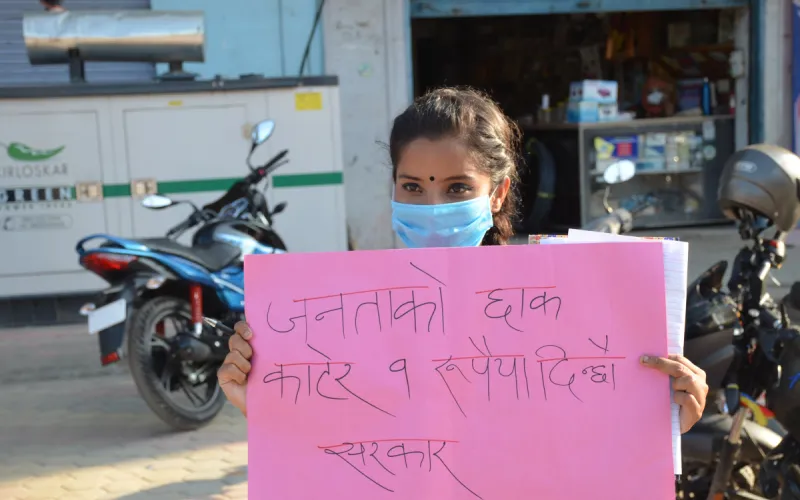 KIRLOSKAR
GREEN
जनताको छाक
काटेर १ रूपैया दिन्छौ
सरकार